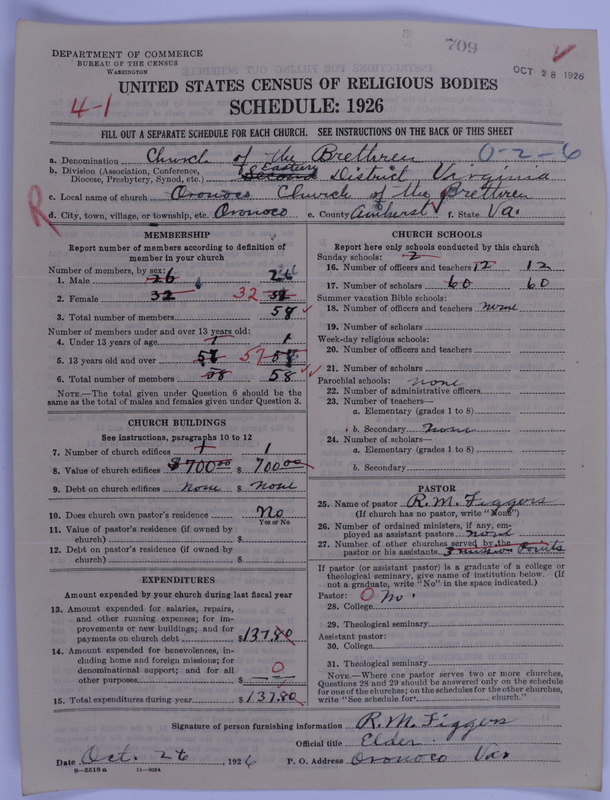 DEPARTMENT OF COMMERCE
BUREAU OF THE CENSUS
WASHINGTON
709
OCT 28 1926
4-1
UNITED STATES CENSUS OF RELIGIOUS BODIES
SCHEDULE: 1926
FILL OUT A SEPARATE SCHEDULE FOR EACH CHURCH. SEE INSTRUCTIONS ON THE BACK OF THIS SHEET
a. Denomination Church of the Brethren 0-2-6
b. Division (Association, Conference, Diocese, Presbytery, Synod, etc.) Second Eastern District Virginia
c. Local name of church Oronoco Church of the Brethren
R
d. City, town, village, or township, etc. Oronoco e. County Amherst f. State Va.
MEMBERSHIP
Report number of members according to definition of
member in your church
Number of members, by sex:
1. Male 26 26
2. Female 32 32 32
3. Total number of members 58
Number of members under and over 13 years old:
4. Under 13 years of age 1 1
5. 13 years old and over 57 57 58
6. Total number of members 58 58
NOTE.—The total given under Question 6 should be
same as the total of males and females given under Question 3.
CHURCH BUILDINGS
See instructions, paragraphs 10 to 12
7. Number of church edifices 1 1
8. Value of church edifices $700.00 $700.00
9. Debt on church edifices none $ none
10. Does church own pastor's residence No
Yes or No
11. Value of pastor's residence (if owned by
church) $
12. Debt on pastor's residence (if owned by
church) $
EXPENDITURES
Amount expended by your church during last fiscal year
13. Amount expended for salaries, repairs,
and other running expenses; for im-
provements or new buildings; and for
payments on church debt $137.80
14. Amount expended for benevolences, in-
cluding home and foreign missions; for
denominational support; and for all
other purposes $ 0
15. Total expenditures during year $137.80
CHURCH SCHOOLS
Report here only schools conducted by this church
Sunday schools: 2
16. Number of officers and teachers 12 12
17. Number of scholars 60 60
Summer vacation Bible schools:
18. Number of officers and teachers none
19. Number of scholars
Week-day religious schools:
20. Number of officers and teachers
21. Number of scholars
Parochial schools: none
22. Number of administrative officers
23. Number of teachers—
a. Elementary (grades 1 to 8)
b. Secondary none
24. Number of scholars—
a. Elementary (grades 1 to 8)
b. Secondary
PASTOR
25. Name of pastor R.M. Figgers
(If church has no pastor, write "None")
26. Number of ordained ministers, if any, em-
ployed as assistant pastors none
27. Number of other churches served by the
pastor or his assistants 3 mission Points
If pastor (or assistant pastor) is a graduate of a college or
theological seminary, give name of institution below. (If
not a graduate, write "No" in the space indicated.)
Pastor: 0 No.
28. College
29. Theological seminary
Assistant pastor:
30. College
31. Theological seminary
NOTE.—Where one pastor serves two or more churches,
Questions 28 and 29 should be answered only on the schedule
for one of the churches; on the schedules for the other churches,
write "See schedule for church."
Signature of person furnishing information R.M. Figgers
Official title Elder
Date Oct. 26, 1926 P. O. Address Oronoco Va.
8-5518 a 11-9064